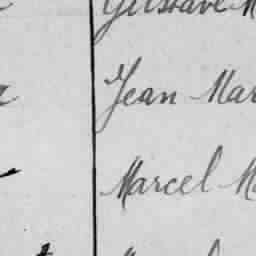 Gustave M
Jean Mar
Marcel Ma